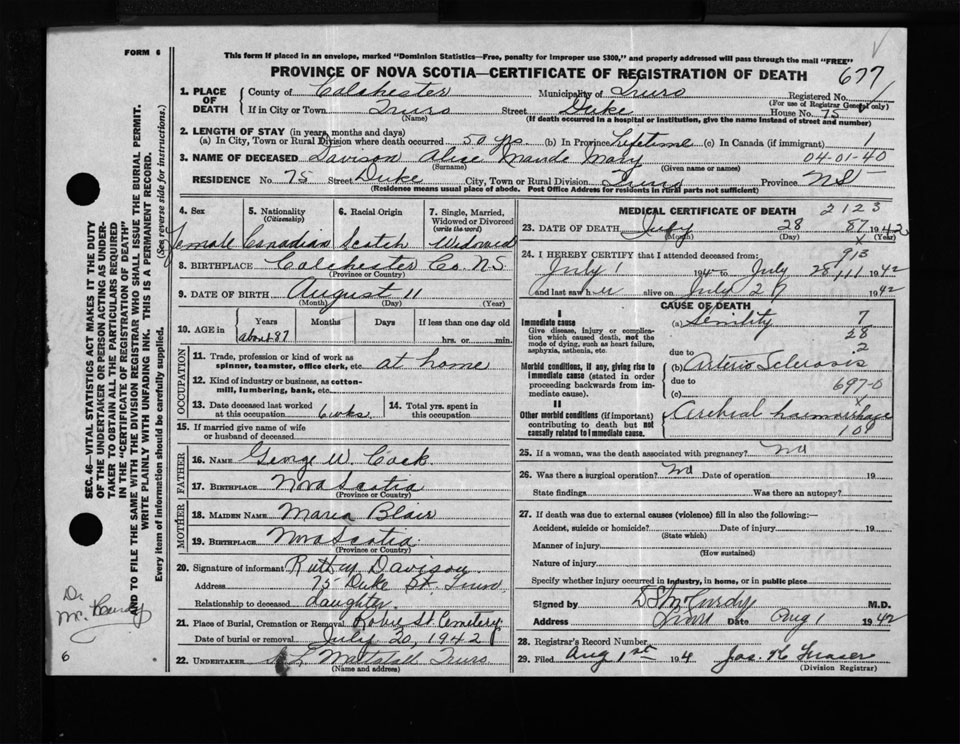 FORM 6
This form if placed in an envelope, marked "Dominion Statistics—Free, penalty for improper use $300," and properly addressed will pass through the mail "FREE"
PROVINCE OF NOVA SCOTIA—CERTIFICATE OF REGISTRATION OF DEATH 677
1. PLACE OF DEATH { County of Colchester Municipality of Truro Registered No.
(For use of Registrar General only)
If in City or Town Truro Street Duke House No. 75
(Name) (If death occurred in a hospital or institution, give the name instead of street and number)
2. LENGTH OF STAY (in years, months and days)
(a) In City, Town or Rural Division where death occurred 50 yrs. (b) In Province Lifetime (c) In Canada (if immigrant) 1
3. NAME OF DECEASED Davison Alice Maude Mary 04-01-40
(Surname) (Given name or names)
RESIDENCE No. 75 Street Duke City, Town or Rural Division Truro Province N.S.
(Residence means usual place of abode. Post Office Address for residents in rural parts not sufficient)
4. Sex 5. Nationality (Citizenship) 6. Racial Origin 7. Single, Married, Widowed or Divorced (write the word)
Female Canadian Scotch Widowed
8. BIRTHPLACE Colchester Co. N.S
(Province or Country)
9. DATE OF BIRTH August 11
(Month) (Day) (Year)
10. AGE in Years Months Days If less than one day old
about 87 hrs. or min.
OCCUPATION
11. Trade, profession or kind of work as spinner, teamster, office clerk, etc. at home
12. Kind of industry or business, as cotton-mill, lumbering, bank, etc.
13. Date deceased last worked at this occupation 6 wks. 14. Total yrs. spent in this occupation
15. If married give name of wife or husband of deceased
FATHER
16. NAME George W. Cock
17. BIRTHPLACE Nova Scotia
(Province or Country)
MOTHER
18. MAIDEN NAME Maria Blair
19. BIRTHPLACE Nova Scotia
(Province or Country)
20. Signature of informant Ruth M Davison
Address 75 Duke St. Truro
Relationship to deceased daughter
21. Place of Burial, Cremation or Removal Robie St. Cemetery
Date of burial or removal July 30, 1942
22. UNDERTAKER Mattatall Truro
(Name and address)
MEDICAL CERTIFICATE OF DEATH 2123
23. DATE OF DEATH July 28 87 1942
(Month) (Day) (Year)
24. I HEREBY CERTIFY that I attended deceased from: 913
July 1 194 to July 28, 111 1942
and last saw h alive on July 27 1942
CAUSE OF DEATH
I
Immediate cause
Give disease, injury or complication which caused death, not the mode of dying, such as heart failure, asphyxia, asthenia, etc.
(a) Senility 7
28
2
due to
Morbid conditions, if any, giving rise to immediate cause (stated in order proceeding backwards from immediate cause).
(b) Arterio Sclerosis
due to 697-0
(c) x
II
Other morbid conditions (if important) contributing to death but not causally related to immediate cause.
Cerebral haemorrhage
25. If a woman, was the death associated with pregnancy? no
26. Was there a surgical operation? no Date of operation 19
State findings Was there an autopsy?
27. If death was due to external causes (violence) fill in also the following:—
Accident, suicide or homicide? Date of injury 19
(State which)
Manner of injury
(How sustained)
Nature of injury
Specify whether injury occurred in industry, in home, or in public place
Signed by D S McCurdy M.D.
Address Truro Date Aug 1 1942
28. Registrar's Record Number
29. Filed Aug 1st 194 Jas. K Fraser
(Division Registrar)
SEC. 46—VITAL STATISTICS ACT MAKES IT THE DUTY
OF THE UNDERTAKER OR PERSON ACTING AS UNDER-
TAKER TO OBTAIN ALL THE PARTICULARS REQUIRED
IN THE "CERTIFICATE OF REGISTRATION OF DEATH"
AND TO FILE THE SAME WITH THE DIVISION REGISTRAR WHO SHALL ISSUE THE BURIAL PERMIT.
WRITE PLAINLY WITH UNFADING INK. THIS IS A PERMANENT RECORD.
Every item of information should be carefully supplied. (See reverse side for instructions.)
Dr
6